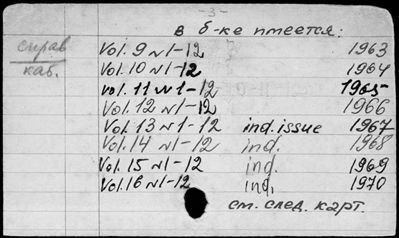 -3-
в б-ке имеется:
справ
каб.
Vol. 9 N1-12 1963
Vol. 10 N1-12 1964
Vol. 11 N1-12 1965
Vol. 12 N1-12 1966
Vol. 13 N1-12 ind. issue 1967
Vol. 14 N1-12 ind. 1968
Vol. 15 N1-12 ind. 1969
Vol. 16 N1-12 ind. 1970
см. след. карт.